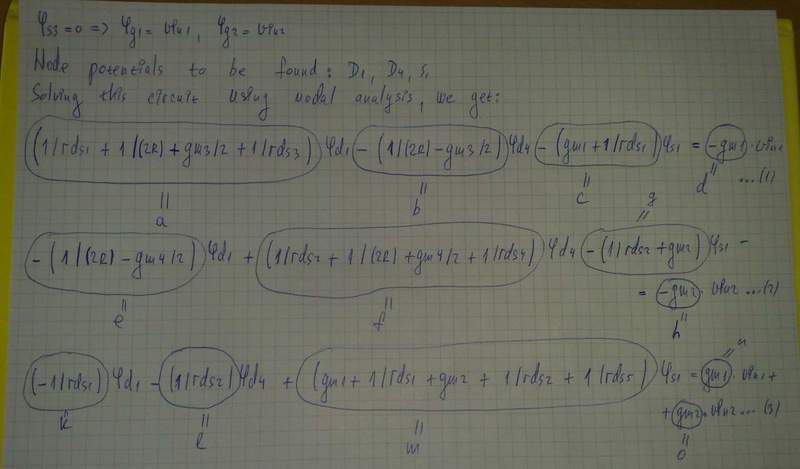 φs3 = 0 => φg1 = vin1, φg2 = vin2
Node potentials to be found: D1, D4, S1
Solving this circuit using nodal analysis, we get:
(1/rds1 + 1/(2R) + gm3/2 + 1/rds3) φd1 - (1/(2R) - gm3/2) φd4 - (gm1 + 1/rds1) φs1 = -gm1 · vin1
... (1)
a b c d g
- (1/(2R) - gm4/2) φd1 + (1/rds2 + 1/(2R) + gm4/2 + 1/rds4) φd4 - (1/rds2 + gm2) φs1 =
= -gm2 · vin2 ... (2)
e f h
(-1/rds1) φd1 - (1/rds2) φd4 + (gm1 + 1/rds1 + gm2 + 1/rds2 + 1/rds5) φs1 = gm1 · vin1 +
n
+ gm2 · vin2 ... (3)
k l m o